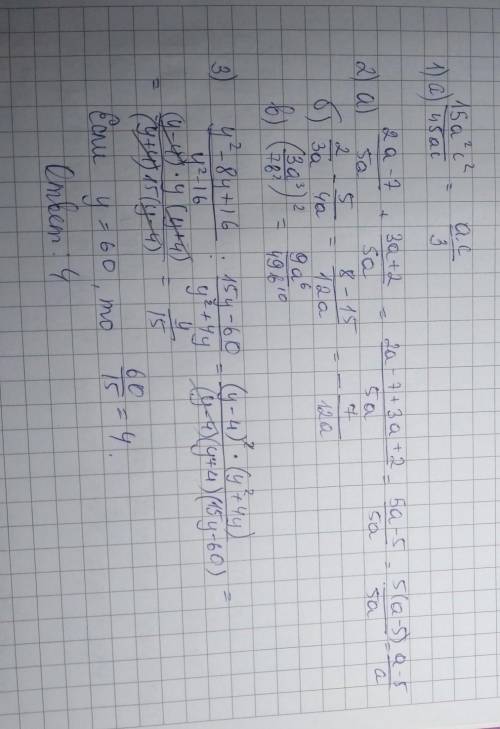 1) а) 15a²c²/45ac = ac/3
2) а) 2a-7/5a + 3a+2/5a = 2a-7+3a+2/5a = 5a-5/5a = 5(a-5)/5a = a-5/a
б) 2/3a - 5/4a = 8-15/12a = - 7/12a
в) (3a³/78²)² = 9a⁶/49b¹⁰
3) y²-8y+16/y²-16 : 15y-60/y²+4y = (y-4)²·(y²+4y)/(y-4)(y+4)(15y-60) =
= (y-4)·y(y+4)/(y+4)15(y-4) = y/15
Если y = 60, то 60/15 = 4.
Ответ: 4